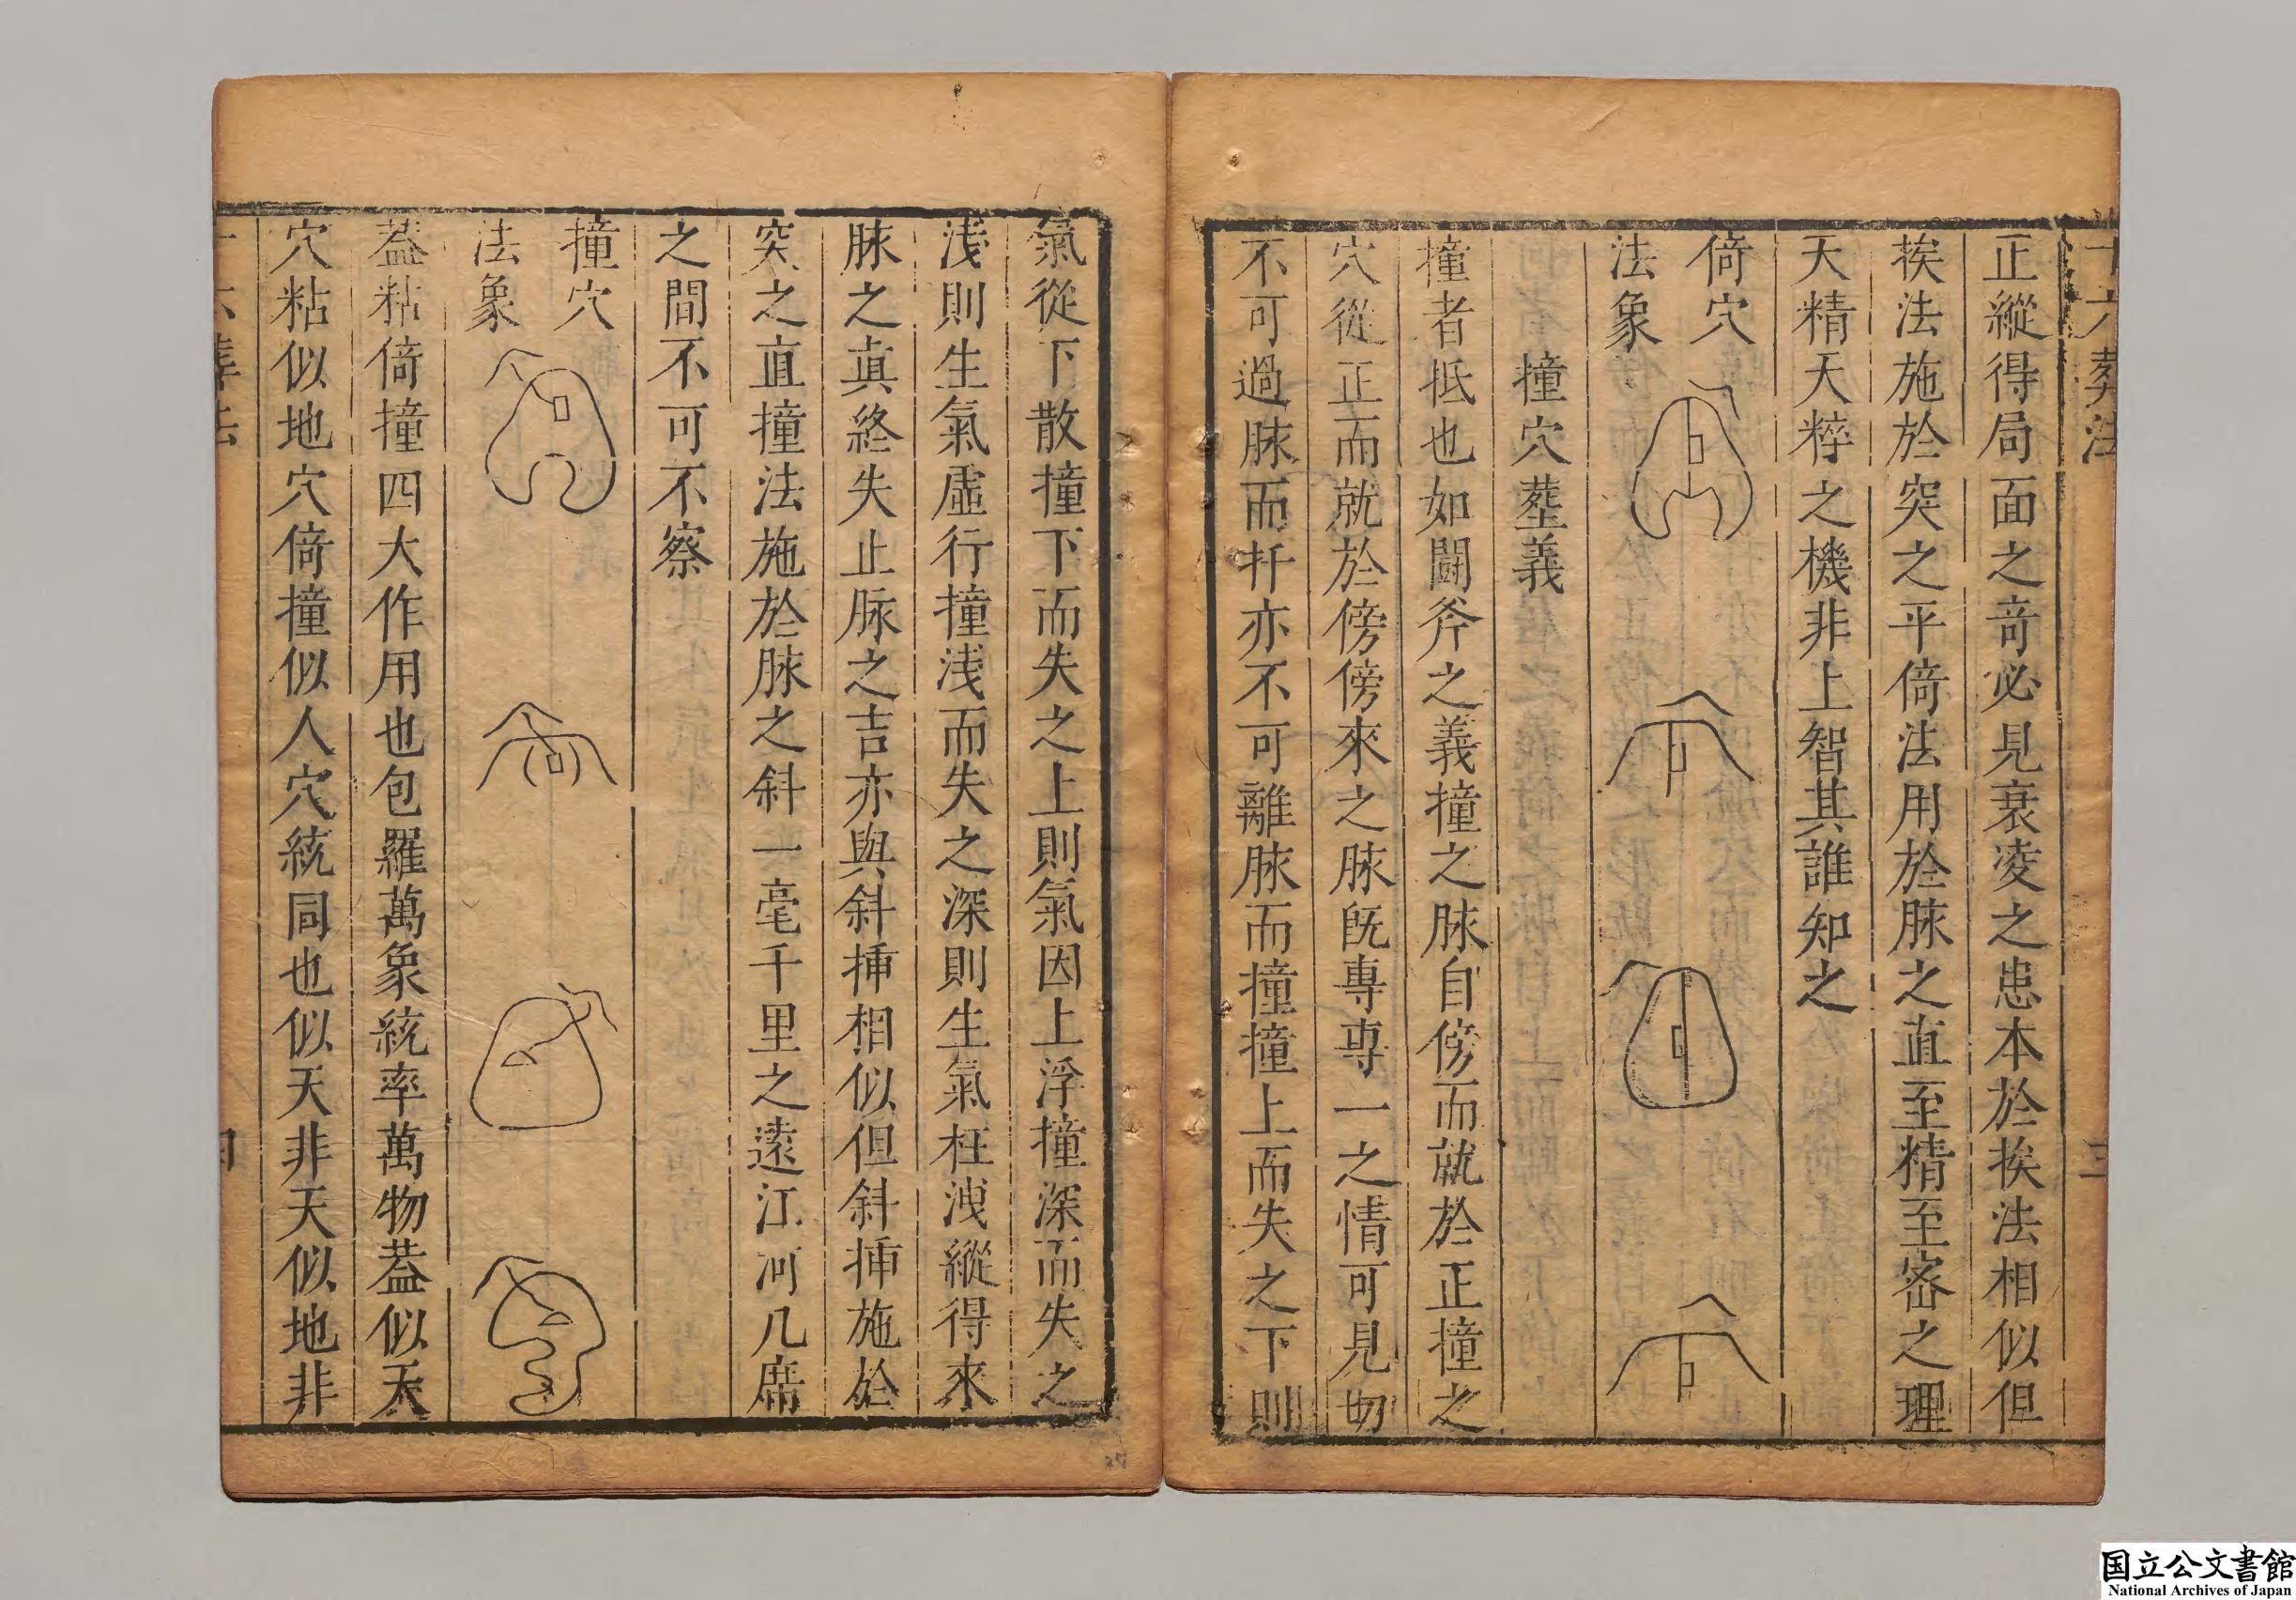 十六葬法
三
正縱得局面之竒必見衰凌之患本於挨法相似但
挨法施於突之平倚法用於脉之直至精至宻之理
天精天粹之機非上智其誰知之
倚穴
法象
撞穴塟義
撞者抵也如鬪斧之義撞之脉自傍而就於正撞之
穴從正而就於傍傍來之脉旣專專一之情可見切
不可過脉而扦亦不可離脉而撞撞上而失之下則
氣從下散撞下而失之上則氣因上浮撞深而失之
浅則生氣虛行撞浅而失之深則生氣枉洩縱得來
脉之眞終失止脉之吉亦與斜揷相似但斜揷施於
突之直撞法施於脉之斜一毫千里之遠江河几席
之間不可不察
撞穴
法象
葢粘倚撞四大作用也包羅萬象統率萬物葢似天
穴粘似地穴倚撞似人穴統同也似天非天似地非
国立公文書館
National Archives of Japan